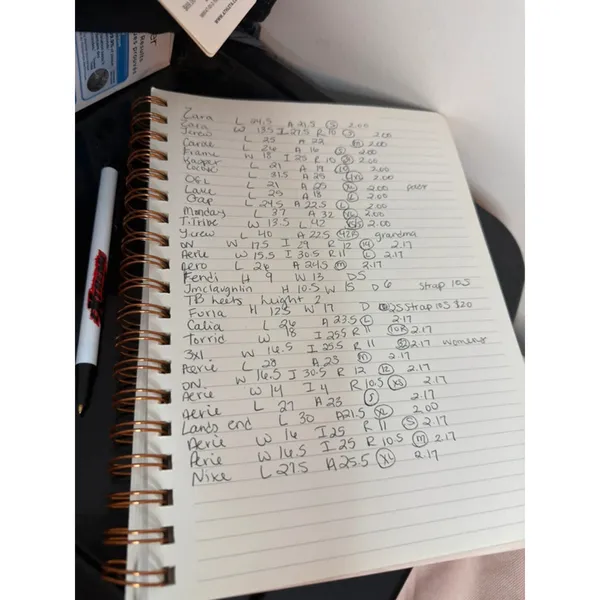 Zara L 24.5 A 21.5 S 2.00
Zara W 13.5 I 27.5 R 10 2.00
Jcrew L 25 A 22 M 2.00
Carve L 26 A 16 S 2.00
Frame W 18 I 25 R 10 2.00
Kasper L 21 A 19 10 2.00
L 31.5 A 25 2.00
O&L L 21 A 25 XL 2.00
L 25 A 18 L 2.00
Gap L 24.5 A 22.5 L 2.00
Monday L 37 A 32 XL 2.00
T.Tribe W 13.5 L 42 2.00
Ycrew L 40 A 22.5 grandma
ON W 17.5 I 29 R 12 2.17
Aerie W 15.5 I 30.5 R 11 L 2.17
Aero L 26 A 24.5 M 2.17
Fendi H 9 W 13 D 5
Jmclaughlin H 10.5 W 15 D 6 Strap 10.5
TB heels height 2
Furla H 12.5 W 17 D Strap 10.5 $20
Calia L 26 A 23.5 L 2.17
Torrid W 18 I 25.5 R 11 2.17
3x1 W 16.5 I 25.5 R 11 2.17
Aerie L 28 A 23 M 2.17
ON. W 16.5 I 30.5 R 12 12 2.17
Aerie W 14 I 4 R 10.5 XS 2.17
Aerie L 27 A 23 S 2.17
Lands end L 30 A 21.5 XL 2.00
Aerie W 16 I 25 R 11 S 2.17
Aerie W 16.5 I 25 R 10.5 M 2.17
Nike L 27.5 A 25.5 XL 2.17